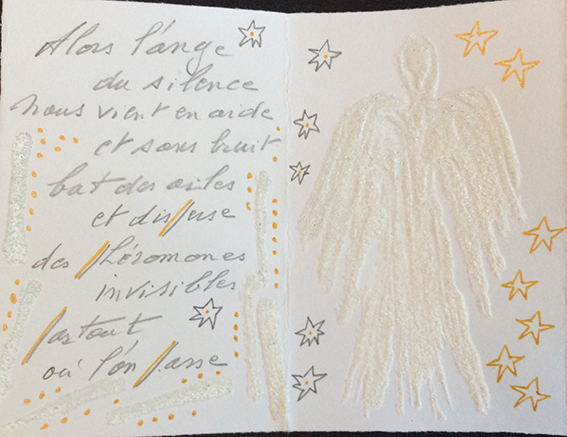 Alors l'ange
du silence
nous vient en aide
et sans bruit
bat des ailes
et disperse
des phéromones
invisibles
partout
où l'on passe